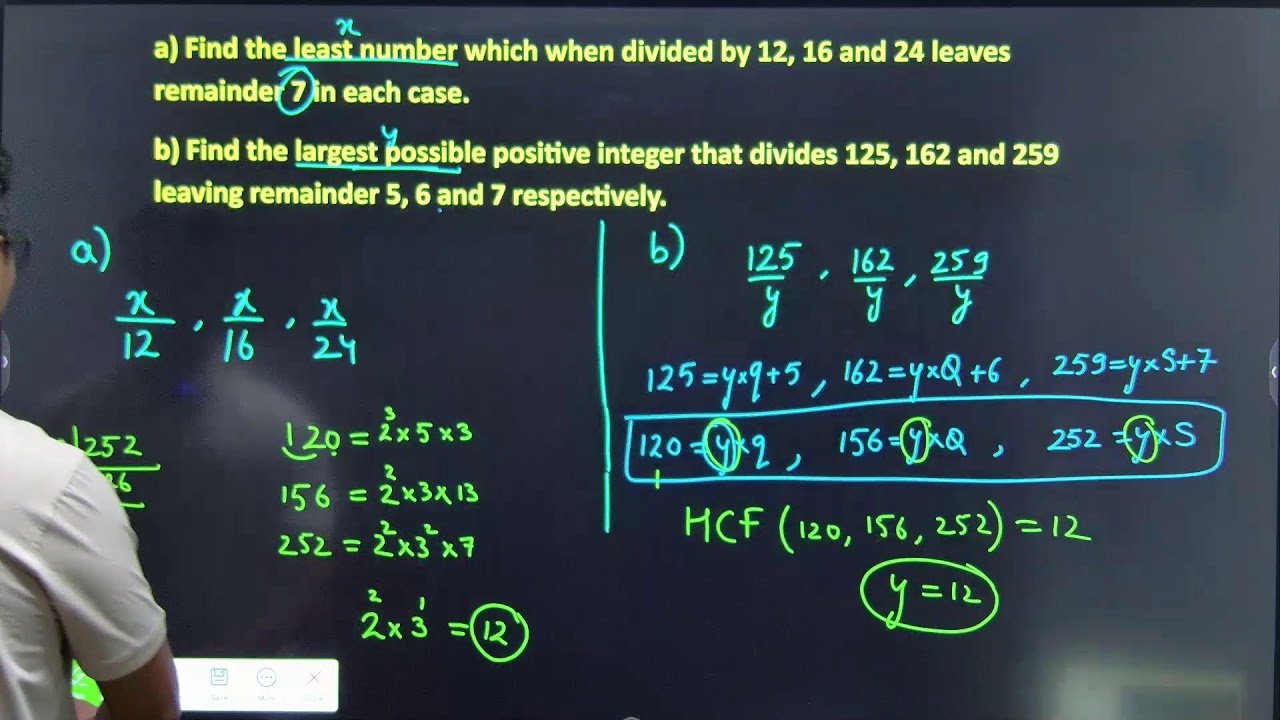 x
a) Find the least number which when divided by 12, 16 and 24 leaves
remainder 7 in each case.
y
b) Find the largest possible positive integer that divides 125, 162 and 259
leaving remainder 5, 6 and 7 respectively.
a)
x/12 , x/16 , x/24
252
120 = 2³×5×3
156 = 2²×3×13
252 = 2²×3²×7
2²×3¹ = 12
b)
125/y , 162/y , 259/y
125=y×q+5 , 162=y×Q+6 , 259=y×S+7
120=y×q , 156=y×Q , 252=y×S
HCF (120, 156, 252) = 12
y = 12
Save
More